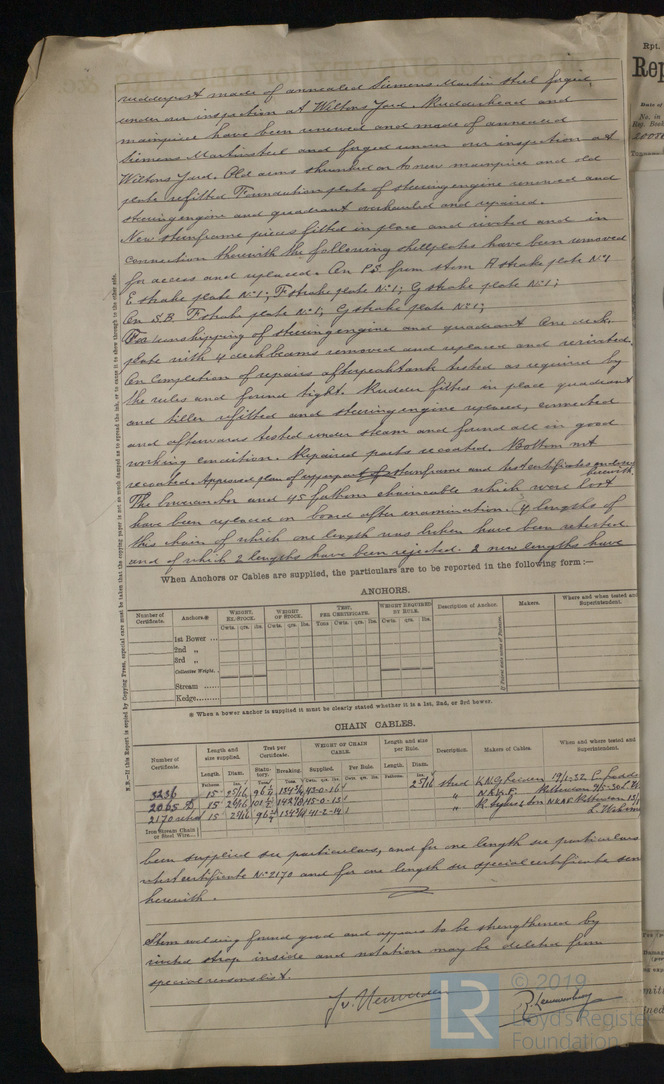 rudderpost made of annealed Siemens Martin steel forged,
under our inspection at Wiltons Yard. Rudderhead and
mainpiece have been renewed and made of annealed
Siemens Martinsteel and forged under our inspection at
Wiltons Yard. Old arms shrunded on to new mainpiece and old
plate refitted Foundation plate of steering engine removed and
steering engine and quadrant overhauled and repaired.
New sternframe pieces fitted in place and riveted and in
connection therewith the following shellplates have been removed
for access and replaced. On P.S. from stern A strake plate No 1
E strake plate No 1; F strake plate No 1; G strake plate No 1;
On S.B. F strake plate No 1, G strake plate No 1;
For unshipping of steering engine and quadrant One deck
plate with 4 deckbeams removed and replaced and reriveted.
On completion of repairs afterpeaktank tested as required by
the rules and found tight. Rudder fitted in place quadrant
and tiller refitted and steering engine replaced, connected
and afterwards tested under steam and found all in good
working condition. Repaired parts recoated. Bottom not
recoated. Approved plan of upperpart of sternframe and testcertificates enclosed
herewith.
The boweranchor and 45 fathom chaincable which were lost
have been replaced on board after examination. 4 lengths of
this chain of which one length was broken have been retested
and of which 2 lengths have been rejected. 2 new lengths have
When Anchors or Cables are supplied, the particulars are to be reported in the following form :—
ANCHORS.
Number of Certificate.
Anchors.*
WEIGHT, EX. STOCK.
WEIGHT OF STOCK.
TEST, PER CERTIFICATE.
WEIGHT REQUIRED BY RULE.
Description of Anchor.
Makers.
Where and when tested and Superintendent.
Cwts. qrs. lbs. Cwts. qrs. lbs. Tons Cwts. qrs. lbs. Cwts. qrs. lbs.
1st Bower ...
2nd „
3rd „
Collective Weight.
Stream ......
Kedge.........
* When a bower anchor is supplied it must be clearly stated whether it is a 1st, 2nd, or 3rd bower.
CHAIN CABLES.
Number of Certificate.
Length and size supplied.
Test per Certificate.
WEIGHT OF CHAIN CABLE.
Length and size per Rule.
Description.
Makers of Cables.
When and where tested and Superintendent.
Length. Diam. Statutory. Breaking. Supplied. Per Rule. Length. Diam.
3236 15 stud 19/1-32
2065 15 N.K.A.F. Rotterdam
2170 15
Iron Stream Chain or Steel Wire...
been supplied see particulars, and for one length see particulars
testcertificate No 2170 and for one length see special certificate sent
herewith.
Stem welding found good and appears to be strengthened by
riveted strap inside and notation may be deleted from
special reasons list.
N.B.—If this Report is copied by Copying Press, especial care must be taken that the copying paper is not so much damped as to spread the ink, or to cause it to show through to the other side.
© 2019
Lloyd's Register
Foundation
LR
Rpt.
Rep
Date of
No. in
Reg. Book